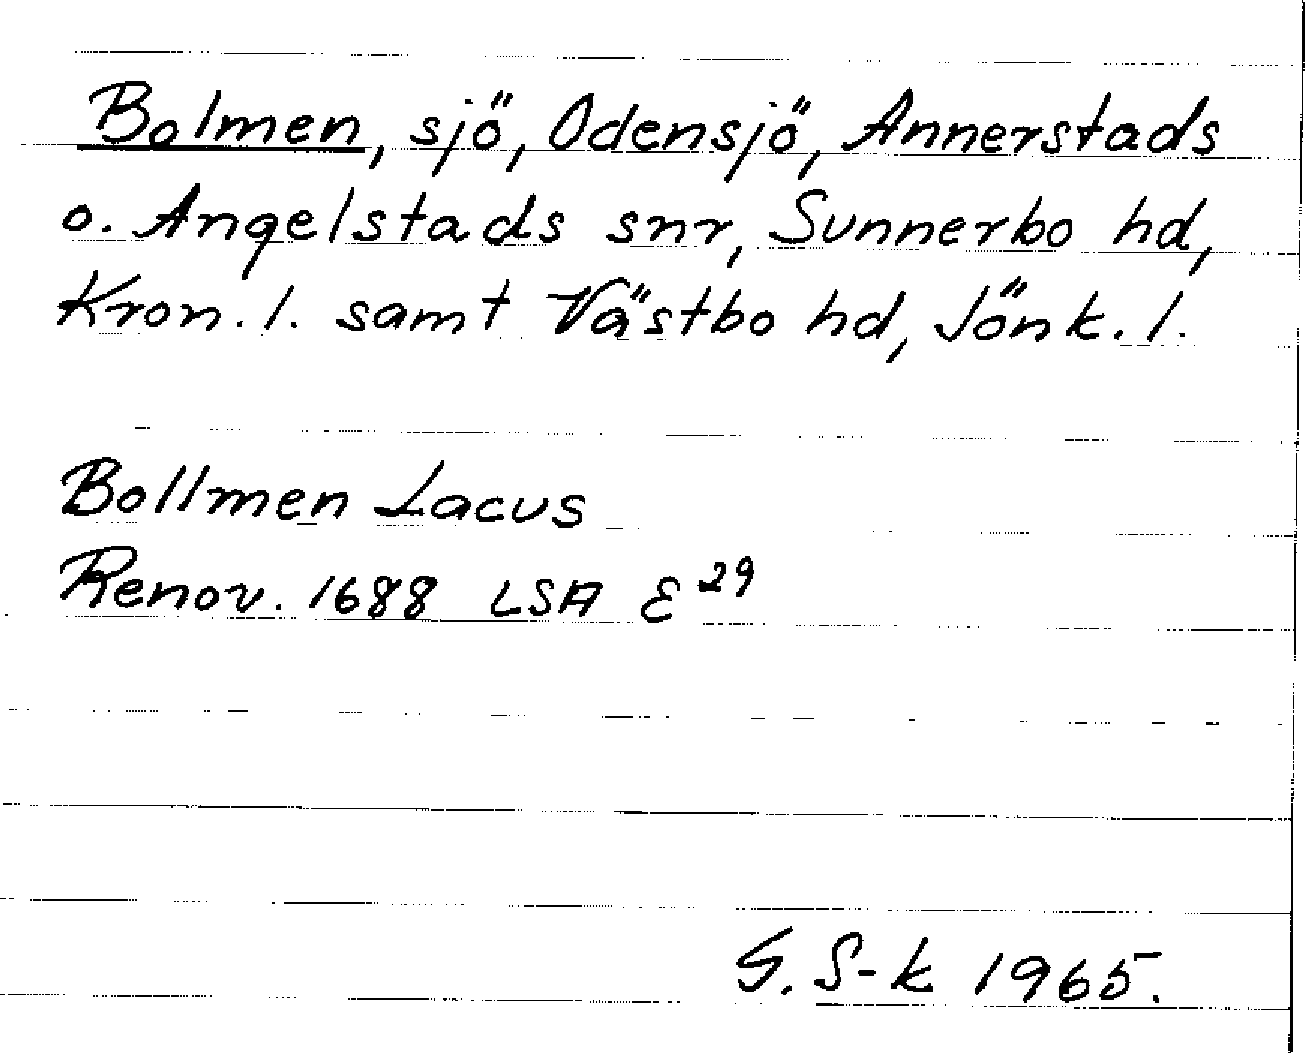 Bolmen, sjö, Odensjö, Annerstads
o. Angelstads snr, Sunnerbo hd,
Kron. l. samt Västbo hd, Jönk. l.
Bollmen Lacus
Renov. 1688 LSA E 29
G. S-k 1965.